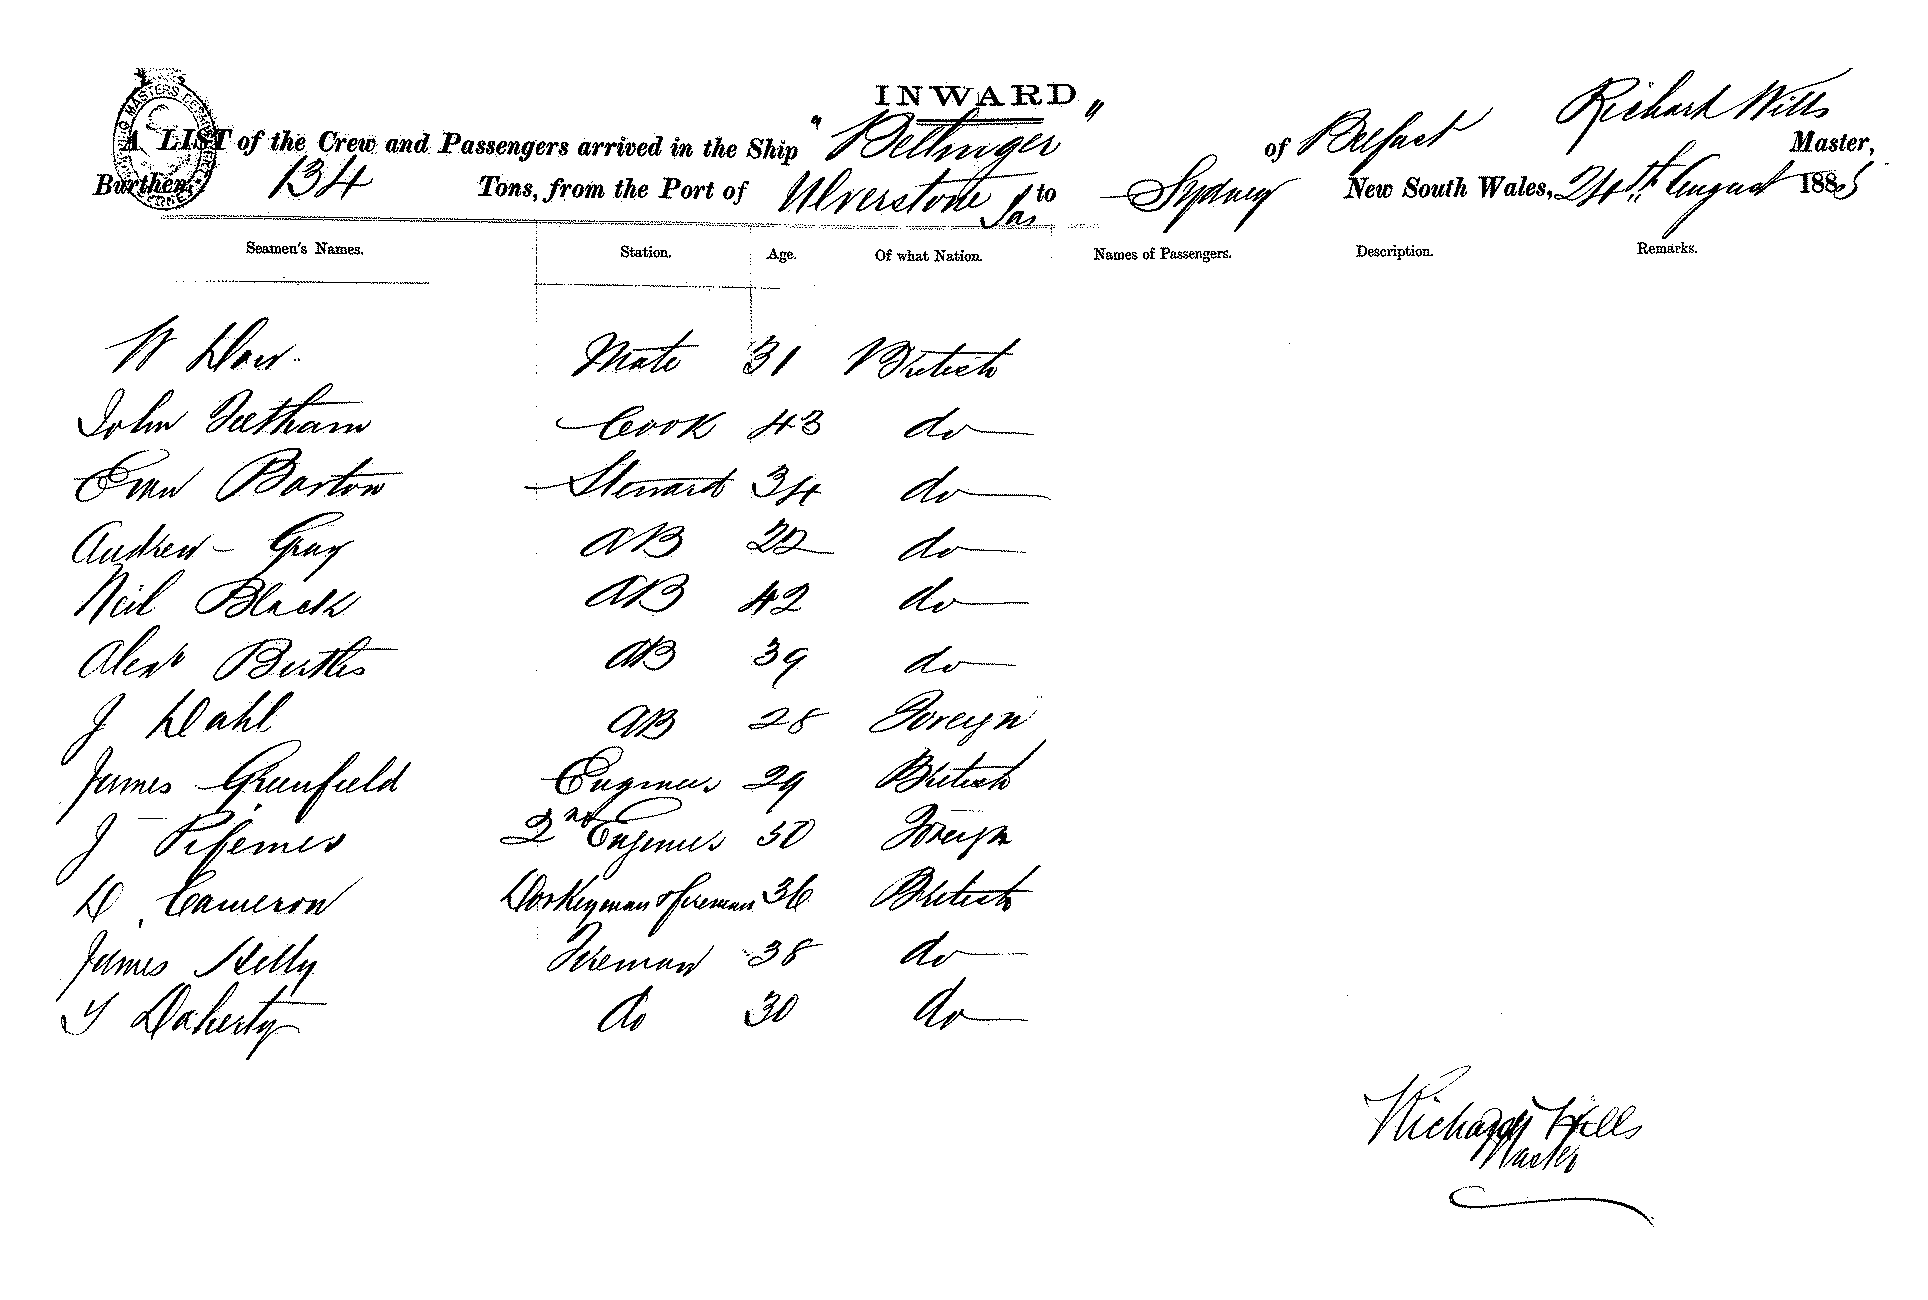 INWARD
A LIST of the Crew and Passengers arrived in the Ship "Bellinger" of Belfast Richard Wills Master,
Burthen, 134 Tons, from the Port of Ulverstone Tas to Sydney New South Wales, 24th August 1885
Seamen's Names. Station. Age. Of what Nation. Names of Passengers. Description. Remarks.
W Dow Mate 31 British
John Feetham Cook 43 do
Evan Barton Steward 34 do
Andrew Gray AB 22 do
Neil Black AB 42 do
Alexr Birtles AB 39 do
J Dahl AB 28 Foreign
James Greenfield Engineer 29 British
J 2nd Engineer 30 Foreign
D Cameron Donkeyman & fireman 36 British
James Kelly Fireman 38 do
Doherty do 30 do
Richard Wills
Master